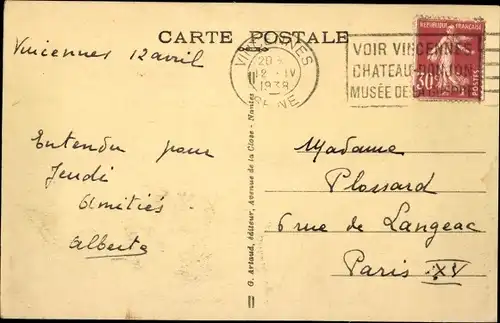 CARTE POSTALE
Vincennes 12 avril
Entendu pour
Jeudi
Amitiés
Alberte
G. Artaud, éditeur, Avenue de la Close - Nantes
VINCENNES
1938
SEINE
VOIR VINCENNES
CHATEAU-DONJON
MUSÉE DE LA GUERRE
REPUBLIQUE FRANÇAISE
30
POSTES
Madame
Plossard
6 rue de Langeac
Paris XV